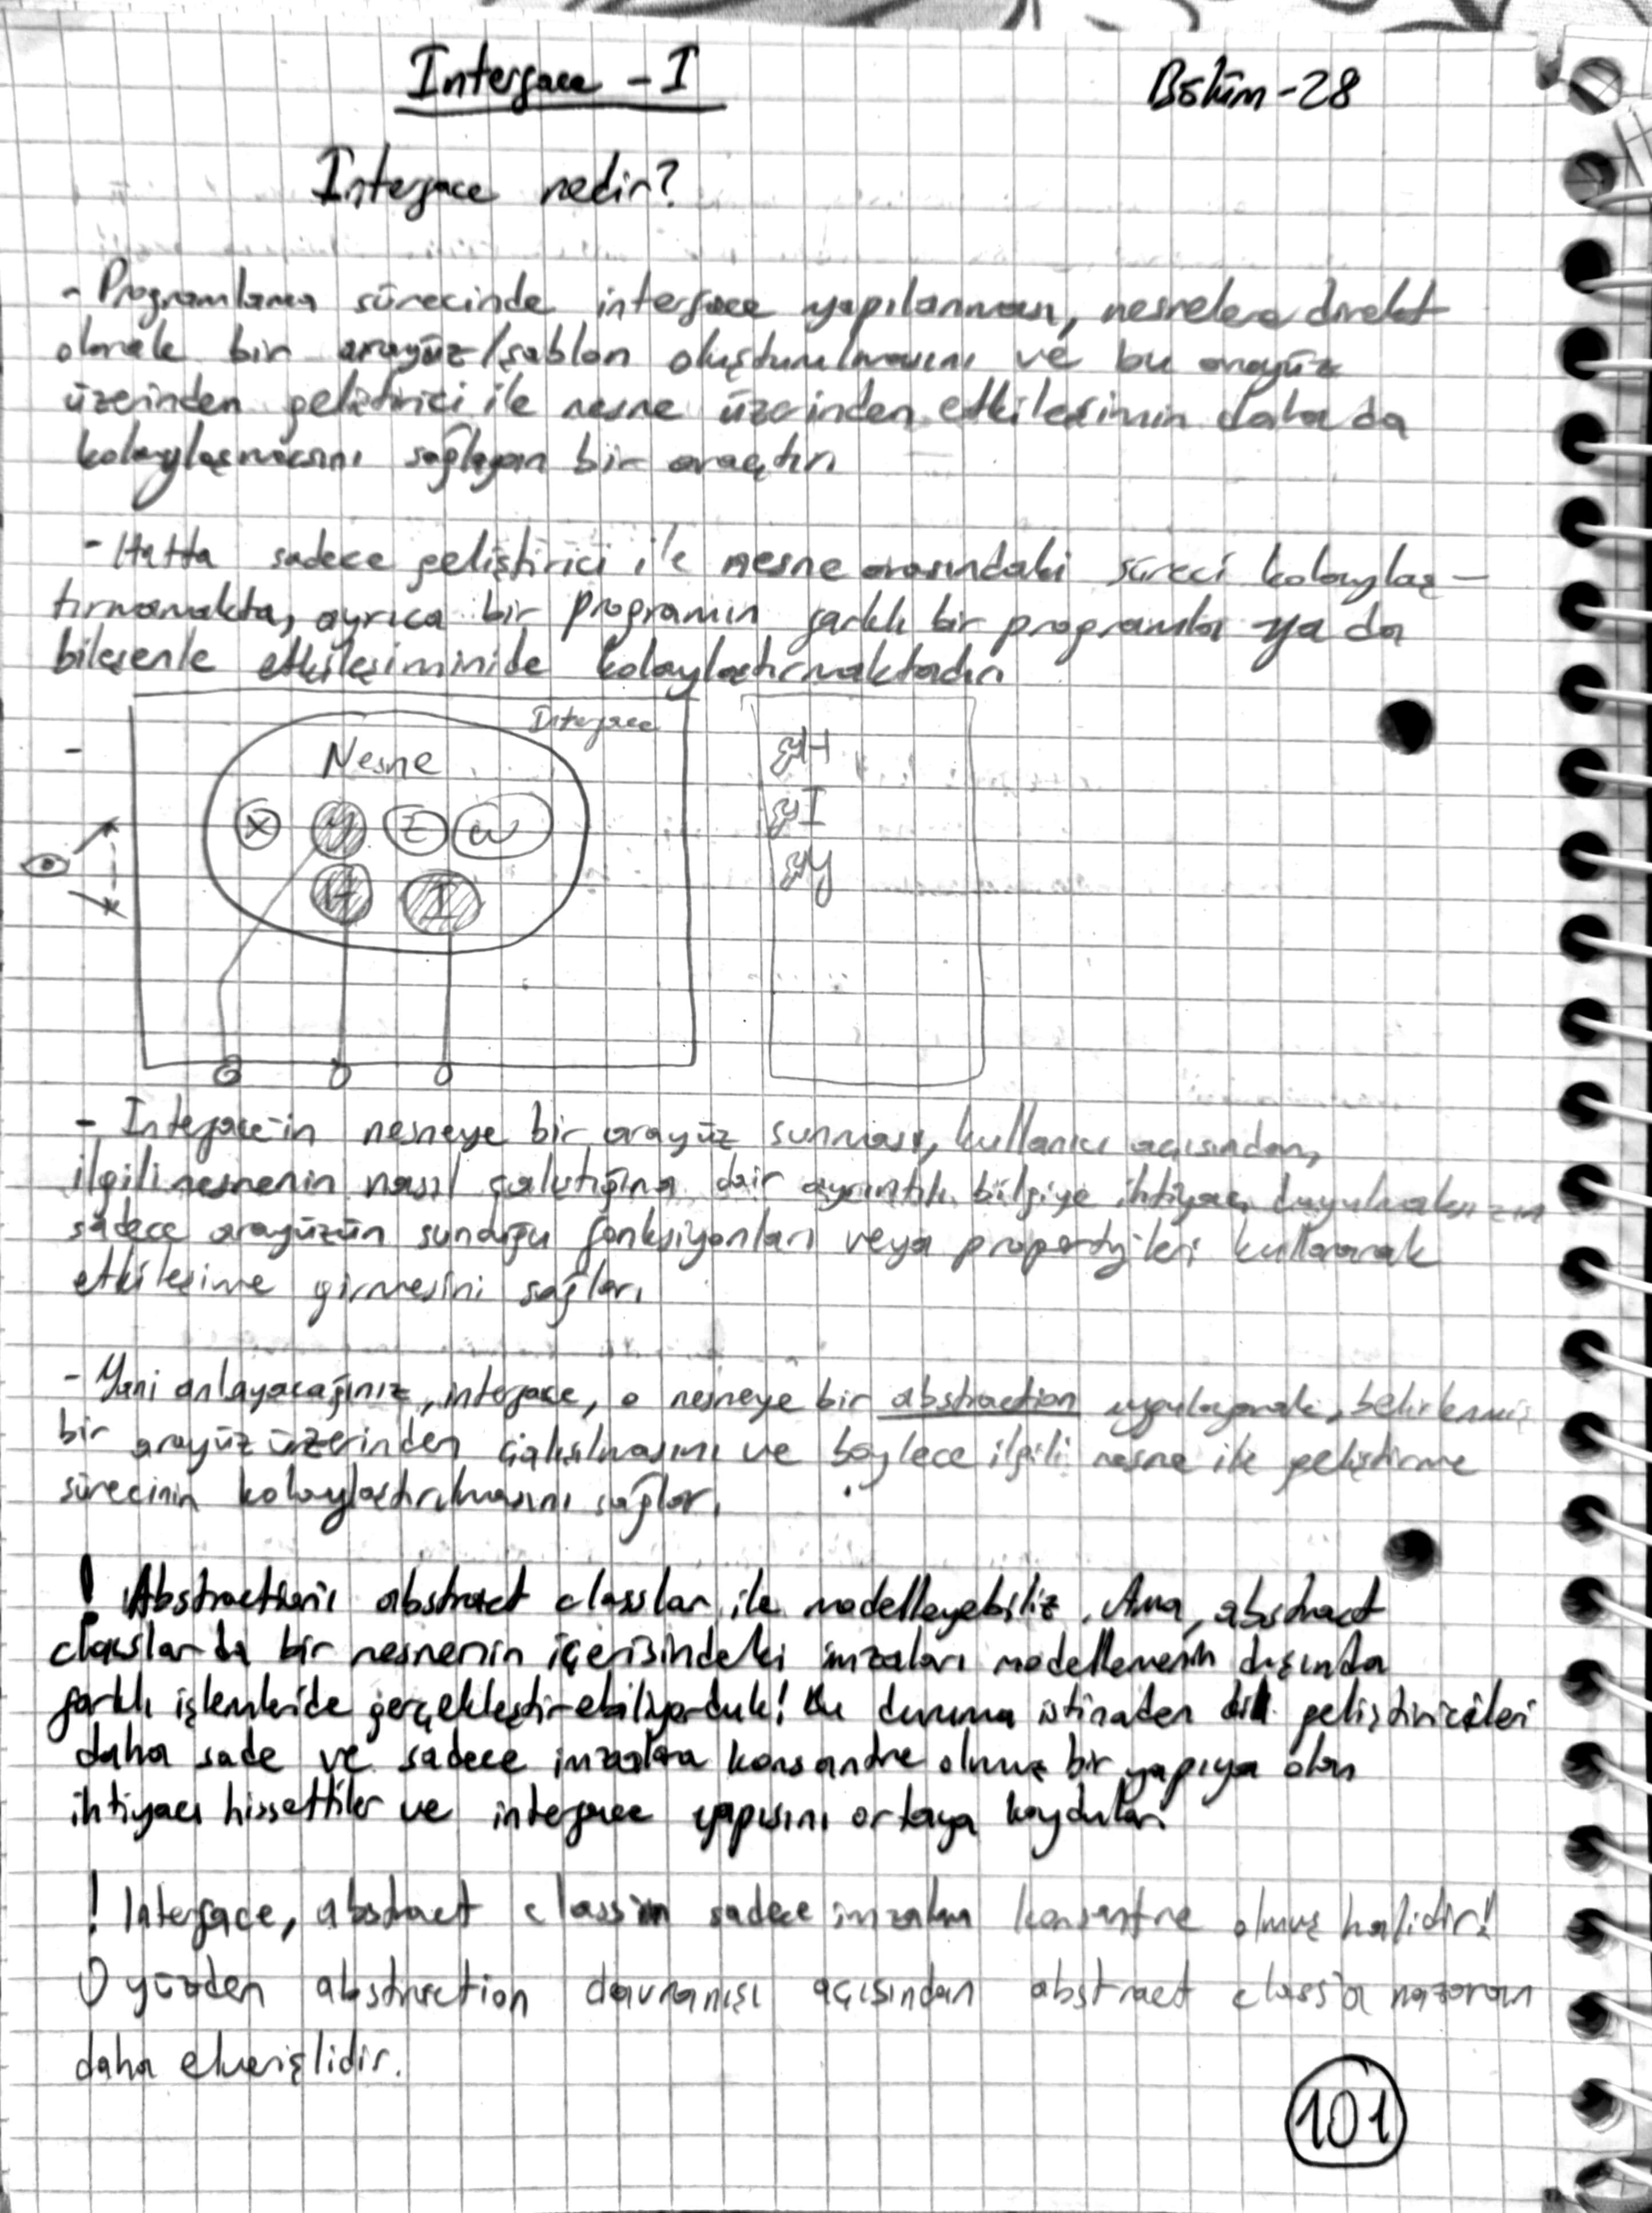 Interface - I
Bölüm - 28
Interface nedir?
- Programlama sürecinde interface yapılanması, nesnelere direkt
olarak bir arayüz/şablon oluşturulmasını ve bu arayüz
üzerinden geliştirici ile nesne üzerinden etkilesimin daha da
kolaylaşmasını sağlayan bir araçtır.
- Hatta sadece geliştirici ile nesne arasındaki süreci kolaylaş-
tırmamakta, ayrıca bir programın farklı bir programla ya da
bileşenle etkileşiminide kolaylaştırmaktadır.
-
Interface
Nesne
X Y Z W
H I
H
I
Y
- Interface'in nesneye bir arayüz sunması, kullanıcı açısından,
ilgili nesnenin nasıl çalıştığına dair ayrıntılı bilgiye ihtiyaç duyulmaksızın
sadece arayüzün sunduğu fonksiyonları veya property'leri kullanarak
etkileşime girmesini sağlar.
- Yani anlayacağınız, interface, o nesneye bir abstraction uygulayarak, belirlenmiş
bir arayüz üzerinden çalışılmasını ve böylece ilgili nesne ile geliştirme
sürecinin kolaylaştırılmasını sağlar.
! Abstraction'ı abstract classlar ile modelleyebiliz. Ama, abstract
classlar da bir nesnenin içerisindeki imzaları modellemenin dışında
farklı işlemleride gerçekleştirebiliyorduk! Bu duruma istinaden dil geliştiricileri
daha sade ve sadece imzalara konsandre olmuş bir yapıya olan
ihtiyacı hissettiler ve interface yapısını ortaya koydular.
! Interface, abstract class'ın sadece imzalara konsantre olmuş halidir!
O yüzden abstraction davranışı açısından abstract class'a nazaran
daha elverişlidir.
101